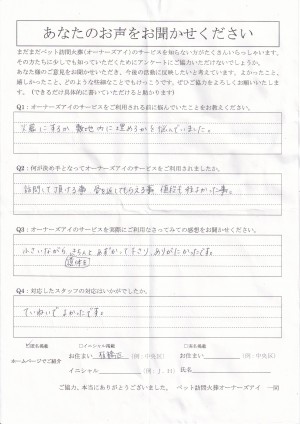 あなたのお声をお聞かせください
まだまだペット訪問火葬(オーナーズアイ)のサービスを知らない方がたくさんいらっしゃいます。
その方たちに少しでも知っていただくためにアンケートにご協力いただけないでしょうか。
あなた様のご意見をお聞かせいただき、今後の活動に反映したいと考えています。よかったこと、
嬉しかったこと、どのような些細なことでもけっこうです。ぜひご協力をよろしくお願いいたしま
す。(できるだけ具体的に書いていただけると助かります)
Q1：オーナーズアイのサービスをご利用される前に悩んでいたことをお教えください。
火葬にするか 敷地内に埋めるかを悩んでいました。
Q2：何が決め手となってオーナーズアイのサービスをご利用されましたか。
訪問して頂ける事 骨を返してもらえる事 値段も性よかった事。
Q3：オーナーズアイのサービスを実際にご利用なさってみての感想をお聞かせください。
小さいながら きちんと あずかって下さり、ありがたかったです。
遺体を
Q4：対応したスタッフの対応はいかがでしたか。
ていねいで よかったです。
ホームページでご紹介
☑匿名掲載 □イニシャル掲載 □実名掲載
お住まい 板橋区 (例：中央区) お住まい (例：中央区)
イニシャル (例：J．H) 氏名
ご協力、本当にありがとうございました。 ペット訪問火葬オーナーズアイ 一同